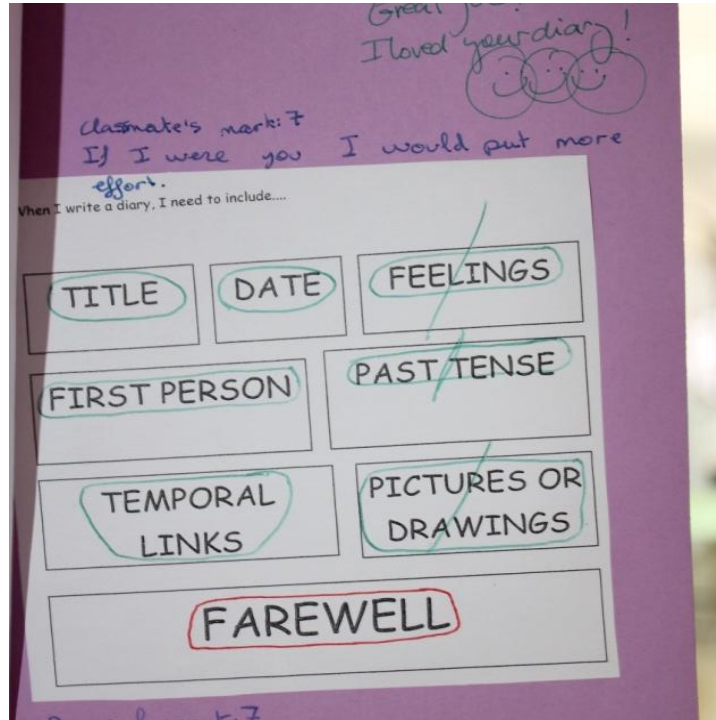 Great
I loved your diary!
Classmate's mark: 7
If I were you I would put more
effort.
When I write a diary, I need to include....
TITLE DATE FEELINGS
FIRST PERSON PAST TENSE
TEMPORAL
LINKS
PICTURES OR
DRAWINGS
FAREWELL